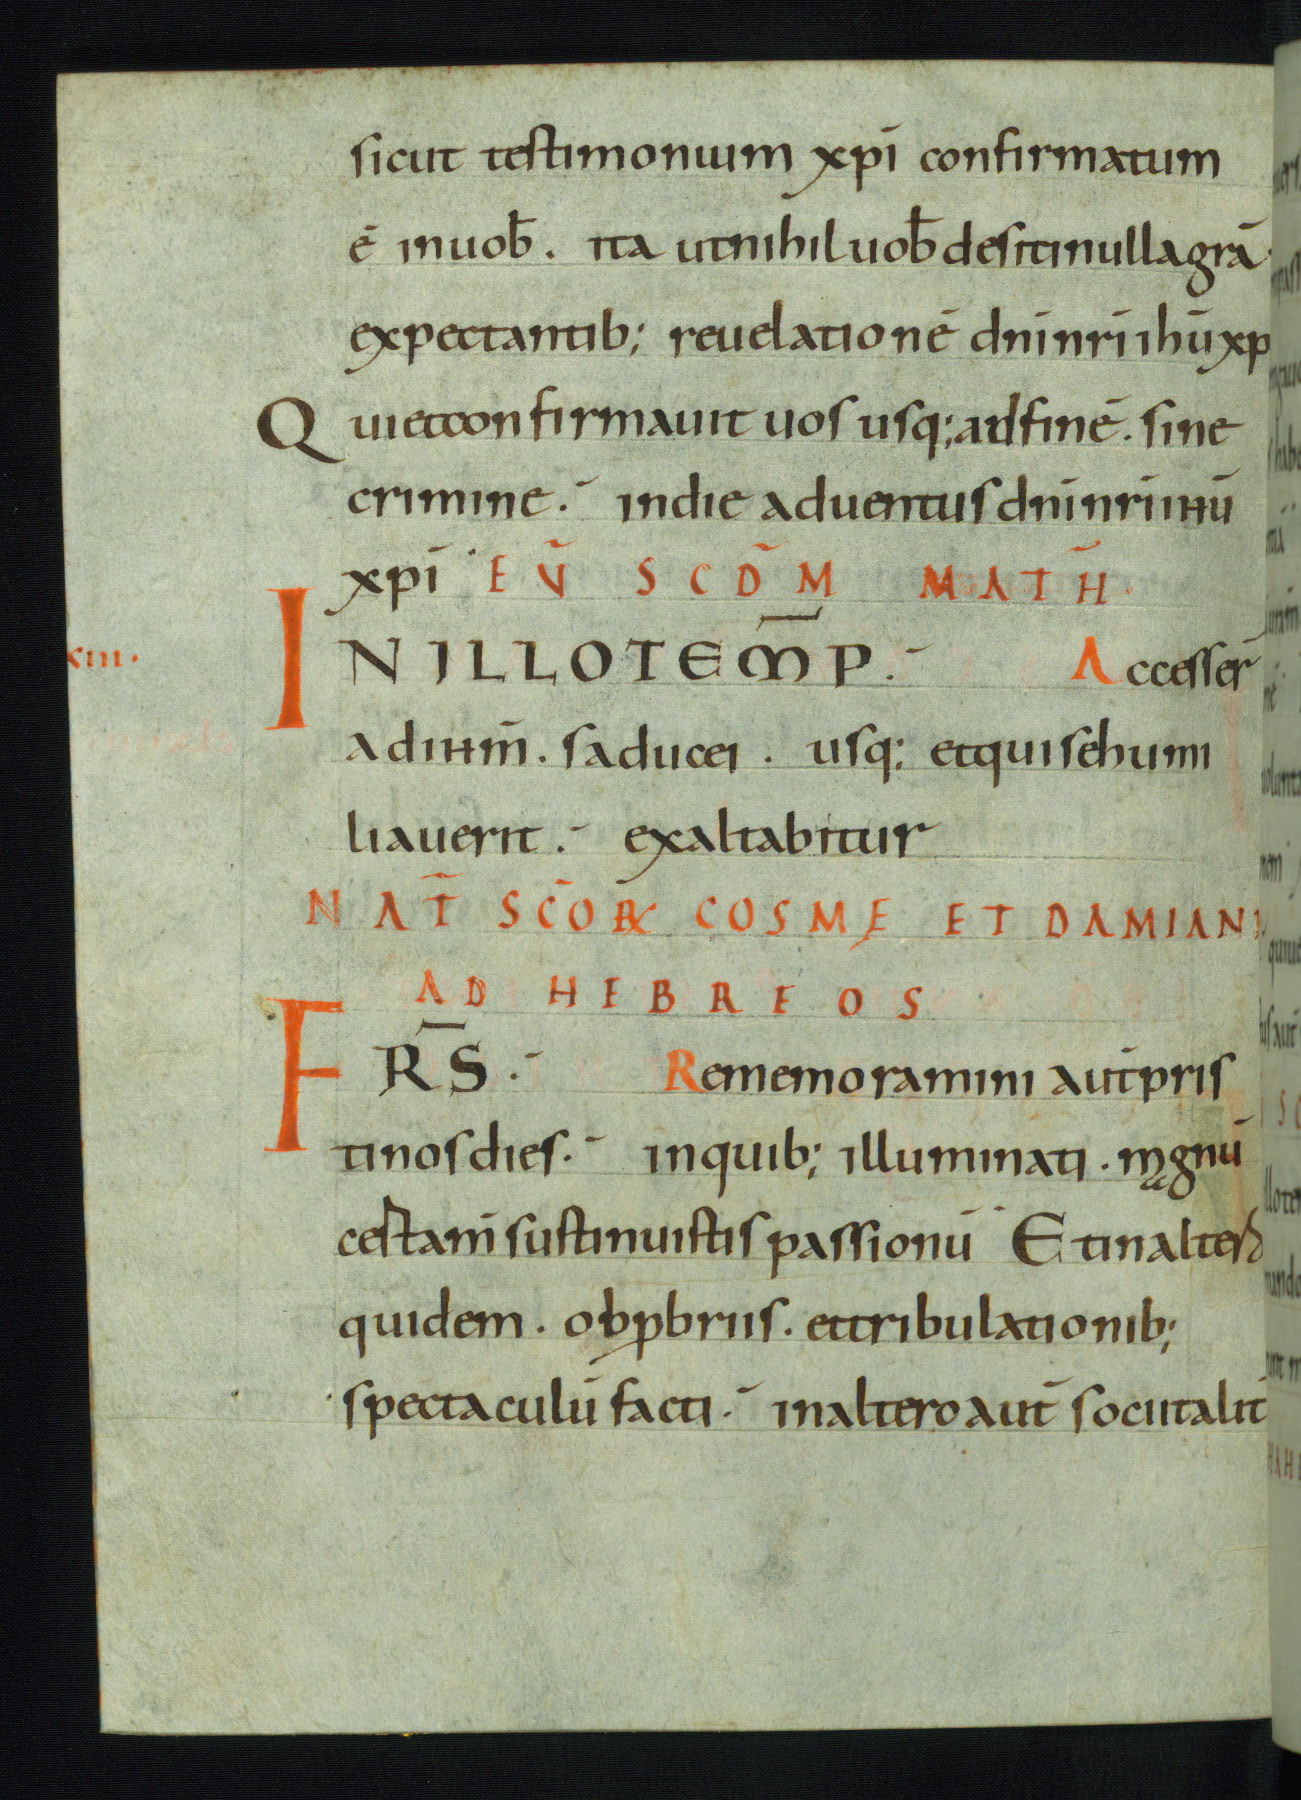 sicut testimonium xpī confirmatum
ē inuob̄. ita utnihiluob̄desitinullagrā
expectantib; reuelationē dn̄inr̄iih̄uxp
Quietconfirmauit uos usq;adfinē. sine
crimine. indie aduentusdn̄inr̄iihū
xpī EṼ SCD̃M MATH̃.
INILLOTEM̄P. Accesser̄
xiii.
adihm̄. saducei. usq; etquisehumi
liauerit. exaltabitur
NAT̄ SC̄OꝜ COSMĘ ET DAMIANI
AD HEBREOS
FR̄S. Rememoramini aut̄pris
tinosdies. inquib; illuminati. magnū
certam̄sustinuistis passionū Etinalter̄
quidem. obꝓbriis. ettribulationib;
spectaculū facti. inalteroaut̄ sociitalit̄